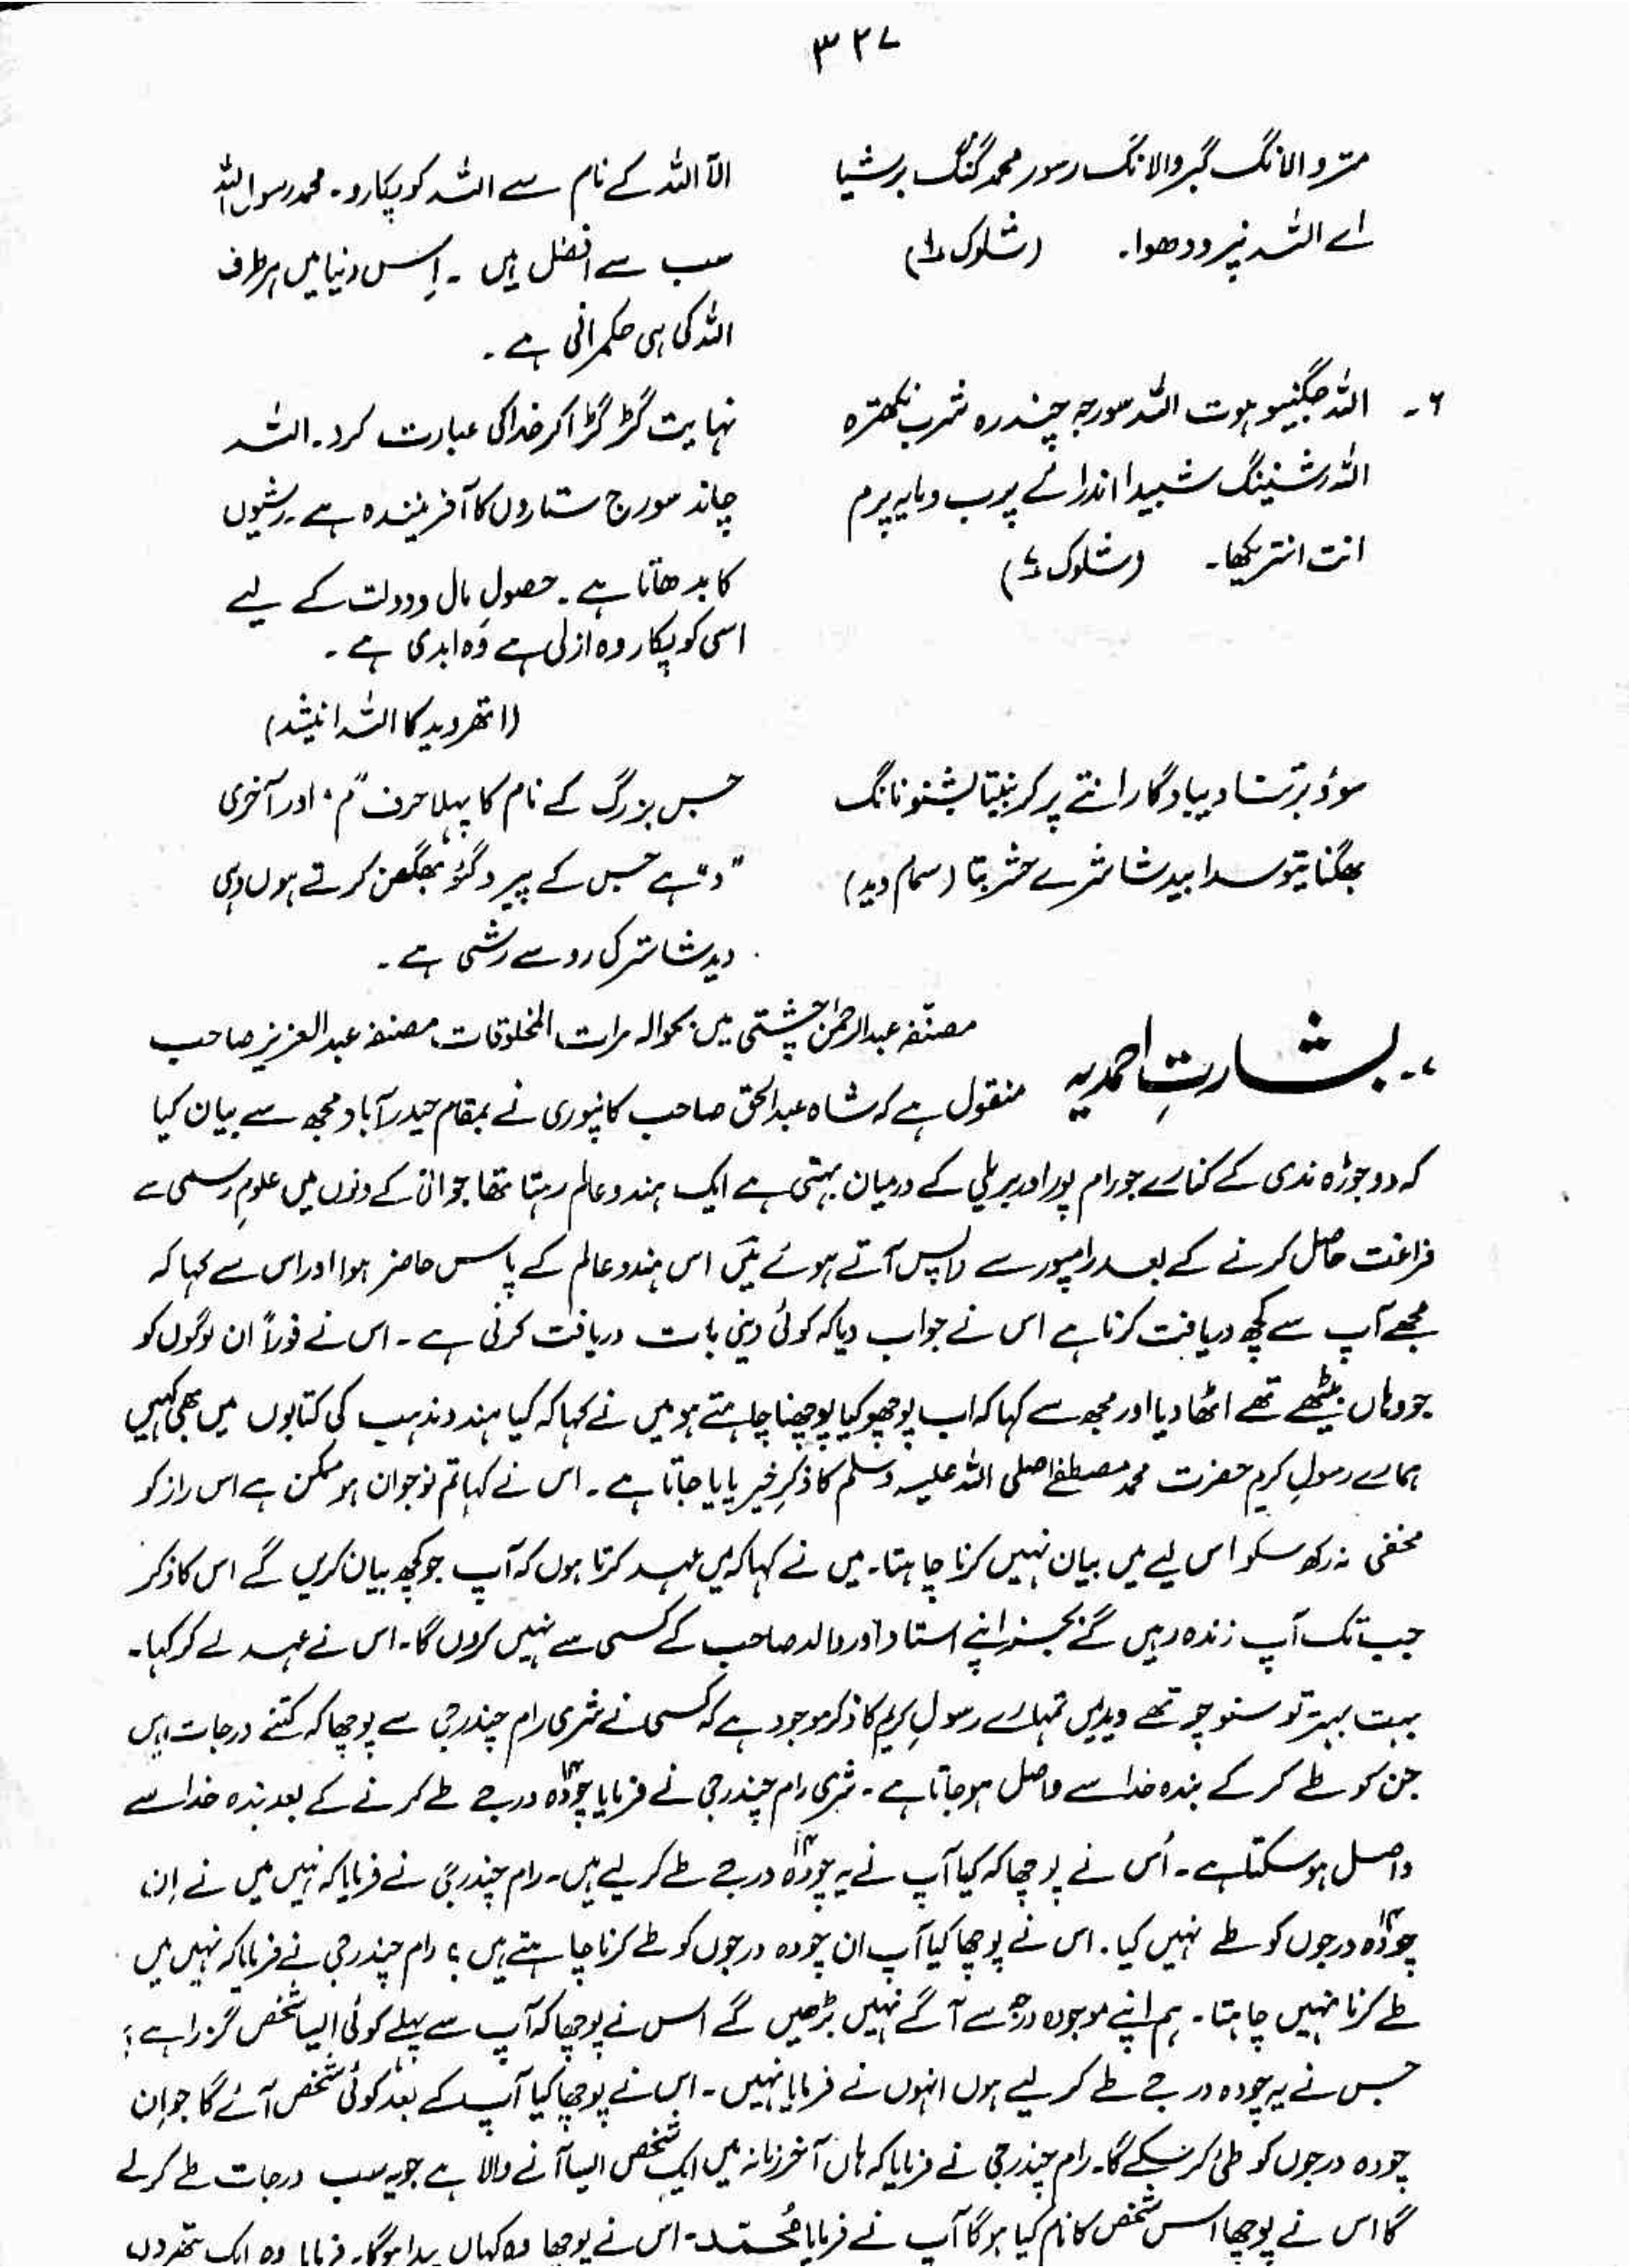 ۳۲۷
مترو الانگ گبر والانگ رسور محمد گنگ برشیا
اے اللہ نپرودھوا۔ (شلوک ۱)
الا اللہ کے نام سے اللہ کو پکارو۔ محمد رسول اللہ
سب سے افضل ہیں۔ اِس دنیا میں ہر طرف
اللہ کی ہی حکمرانی ہے۔
۶۔ اللہ جگنیو ہوت اللہ سورجہ چندرہ شرب نکھترہ
اللہ رشینگ شبیدا اندرائے پرب دیایہ پرم
انت انتریکھا۔ (شلوک)
نہایت گڑگڑا کر خدا کی عبارت کرد۔ اللہ
چاند سورج ستاروں کا آفرینندہ ہے۔ رشیوں
کا بدھاتا ہے۔ حصولِ مال و دولت کے لیے
اسی کو پکار وہ ازلی ہے وُہ ابدی ہے۔
(اتھروید کا اللہ انیشد)
مودٔ برتتا دیبا دگارانتے پرکرنیتا پشنونانگ
بھگنا یتوسدا بیدشاشترے حشربتا (سام وید)
جس بزرگ کے نام کا پہلا حرف "م" اور آخری
"د" ہے جس کے پیرو گئو بھگھن کرتے ہوں وہی
ویدشاستر کی رو سے رشی ہے۔
۷۔ بشارتِ احمدیہ
مصنّفہ عبدالرحمٰن چشتی میں بحوالہ مرات المخلوقات مصنفہ عبدالعزیز صاحب
منقول ہے کہ شاہ عبدالحق صاحب کانپوری نے بمقام حیدرآباد مجھ سے بیان کیا
کہ دوجوڑہ ندی کے کنارے جو رام پور اور بریلی کے درمیان بہتی ہے ایک ہندو عالم رہتا تھا جوانی کے دنوں میں علومِ رسمی سے
فراغت حاصل کرنے کے بعد رامپور سے واپس آتے ہوئے میَں اس ہندو عالم کے پاس حاضر ہوا اور اس سے کہا کہ
مجھے آپ سے کچھ دریافت کرنا ہے اس نے جواب دیا کہ کوئی دینی بات دریافت کرنی ہے۔ اس نے فوراً ان لوگوں کو
جو وہاں بیٹھے تھے اٹھا دیا اور مجھ سے کہا کہ اب پوچھو کیا پوچھنا چاہتے ہو میں نے کہا کہ کیا ہندو مذہب کی کتابوں میں بھی کہیں
ہمارے رسولِ کریم حضرت محمد مصطفےٰ صلی اللہ علیہ وسلم کا ذکرِ خیر پایا جاتا ہے۔ اس نے کہا تم نوجوان ہو ممکن ہے اس راز کو
مخفی نہ رکھ سکو اس لیے میں بیان نہیں کرنا چاہتا۔ میں نے کہا کہ میں عہد کرتا ہوں کہ آپ جو کچھ بیان کریں گے اس کا ذکر
جب تک آپ زندہ رہیں گے بجز اپنے استاد اور والد صاحب کے کسی سے نہیں کروں گا۔ اس نے عہد لے کر کہا۔
بہت بہتر تو سنو چوتھے وید میں تمہارے رسولِ کریم کا ذکر موجود ہے کہ کسی نے شری رام چندر جی سے پوچھا کہ کتنے درجات ہیں
جن کو طے کر کے بندہ خدا سے واصل ہو جاتا ہے۔ شری رام چندر جی نے فرمایا چودہ۱۴ درجے طے کرنے کے بعد بندہ خدا سے
واصل ہو سکتا ہے۔ اُس نے پوچھا کہ کیا آپ نے یہ چودہ۱۴ درجے طے کر لیے ہیں۔ رام چندر جی نے فرمایا کہ نہیں میں نے اِن
چودہ۱۴ درجوں کو طے نہیں کیا۔ اس نے پوچھا کیا آپ ان چودہ درجوں کو طے کرنا چاہتے ہیں؟ رام چندر جی نے فرمایا کہ نہیں میں
طے کرنا نہیں چاہتا۔ ہم اپنے موجودہ درجہ سے آگے نہیں بڑھیں گے اس نے پوچھا کہ آپ سے پہلے کوئی ایسا شخص گزرا ہے؟
جس نے یہ چودہ درجے طے کر لیے ہوں انہوں نے فرمایا نہیں۔ اس نے پوچھا کیا آپ کے بعد کوئی شخص آئے گا جو اِن
چودہ درجوں کو طی کر سکے گا۔ رام چندر جی نے فرمایا کہ ہاں آخر زمانہ میں ایک شخص ایسا آنے والا ہے جو یہ سب درجات طے کر لے
گا اس نے پوچھا اس شخص کا نام کیا ہو گا آپ نے فرمایا مُحمّد۔ اس نے پوچھا وہ کہاں پیدا ہو گا۔ فرمایا وہ ایک